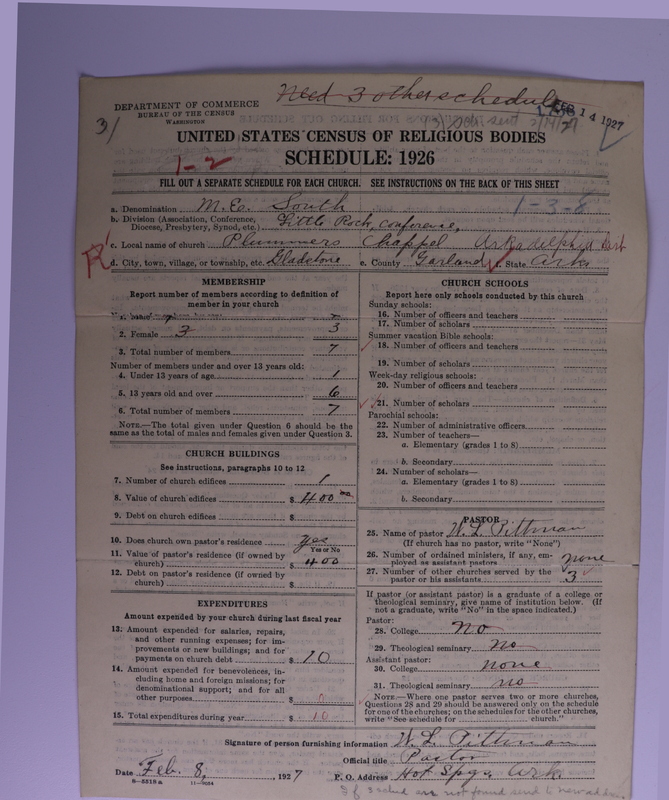 Need 3 other schedules
DEPARTMENT OF COMMERCE
BUREAU OF THE CENSUS
WASHINGTON
3/
FEB 14 1927
UNITED STATES CENSUS OF RELIGIOUS BODIES
1-2
SCHEDULE: 1926
FILL OUT A SEPARATE SCHEDULE FOR EACH CHURCH. SEE INSTRUCTIONS ON THE BACK OF THIS SHEET
a. Denomination M.E. South 1-3-8
b. Division (Association, Conference, Diocese, Presbytery, Synod, etc.) Little Rock, Conference,
c. Local name of church Plummers Chappel Arkadelphia Dist
R
d. City, town, village, or township, etc. Gladstone e. County Garland f. State Ark
MEMBERSHIP
Report number of members according to definition of
member in your church
2. Female 3 3
3. Total number of members 7
Number of members under and over 13 years old:
4. Under 13 years of age 1
5. 13 years old and over 6
6. Total number of members 7
NOTE.—The total given under Question 6 should be
same as the total of males and females given under Question 3.
CHURCH BUILDINGS
See instructions, paragraphs 10 to 12
7. Number of church edifices 1
8. Value of church edifices $ 400 00
9. Debt on church edifices $
10. Does church own pastor's residence yes
Yes or No
11. Value of pastor's residence (if owned by
church) $ 400
12. Debt on pastor's residence (if owned by
church) $
EXPENDITURES
Amount expended by your church during last fiscal year
13. Amount expended for salaries, repairs,
and other running expenses; for im-
provements or new buildings; and for
payments on church debt $ 10
14. Amount expended for benevolences, in-
cluding home and foreign missions; for
denominational support; and for all
other purposes $ 0
15. Total expenditures during year $ 10
CHURCH SCHOOLS
Report here only schools conducted by this church
Sunday schools:
16. Number of officers and teachers
17. Number of scholars
Summer vacation Bible schools:
18. Number of officers and teachers
19. Number of scholars
Week-day religious schools:
20. Number of officers and teachers
21. Number of scholars
Parochial schools:
22. Number of administrative officers
23. Number of teachers—
a. Elementary (grades 1 to 8)
b. Secondary
24. Number of scholars—
a. Elementary (grades 1 to 8)
b. Secondary
PASTOR
25. Name of pastor W. L. Pittman
(If church has no pastor, write "None")
26. Number of ordained ministers, if any, em-
ployed as assistant pastors none
27. Number of other churches served by the
pastor or his assistants 3
If pastor (or assistant pastor) is a graduate of a college or
theological seminary, give name of institution below. (If
not a graduate, write "No" in the space indicated.)
Pastor:
28. College No
29. Theological seminary No
Assistant pastor:
30. College none
31. Theological seminary no
NOTE.—Where one pastor serves two or more churches,
Questions 28 and 29 should be answered only on the schedule
for one of the churches; on the schedules for the other churches,
write "See schedule for church."
Signature of person furnishing information W. L. Pittman
Official title Pastor
Date Feb. 8, 1927 P. O. Address Hot Spgs Ark